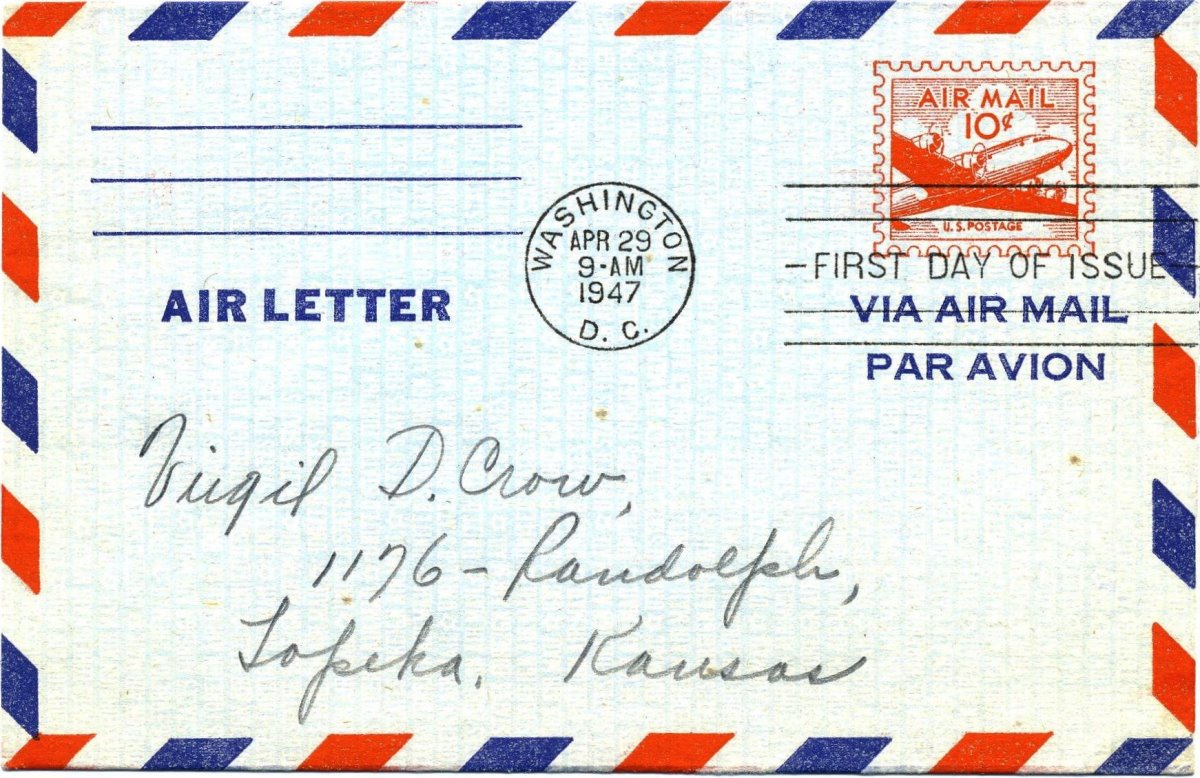 AIR MAIL
10¢
U.S. POSTAGE
WASHINGTON
APR 29
9-AM
1947
D. C.
—FIRST DAY OF ISSUE—
AIR LETTER
VIA AIR MAIL
PAR AVION
Virgil D. Crow,
1176 – Randolph,
Topeka, Kansas